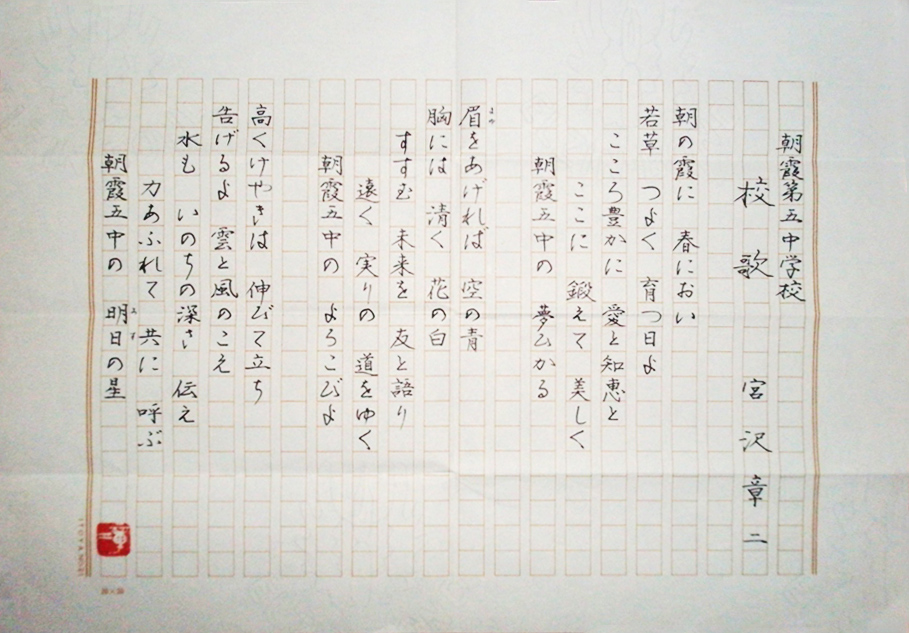 朝霞第五中学校
校歌 宮沢章二
朝の霞に 春におい
若草 つよく 育つ日よ
こころ豊かに 愛と知恵と
ここに 鍛えて 美しく
朝霞五中の 夢ひかる
眉をあげれば 空の青
胸には 清く 花の白
すすむ 未来を 友と語り
遠く 実りの 道をゆく
朝霞五中の よろこびよ
高くけやきは 伸びて立ち
告げるよ 雲と風のこえ
水も いのちの深さ 伝え
力あふれて 共に 呼ぶ
朝霞五中の 明日の星